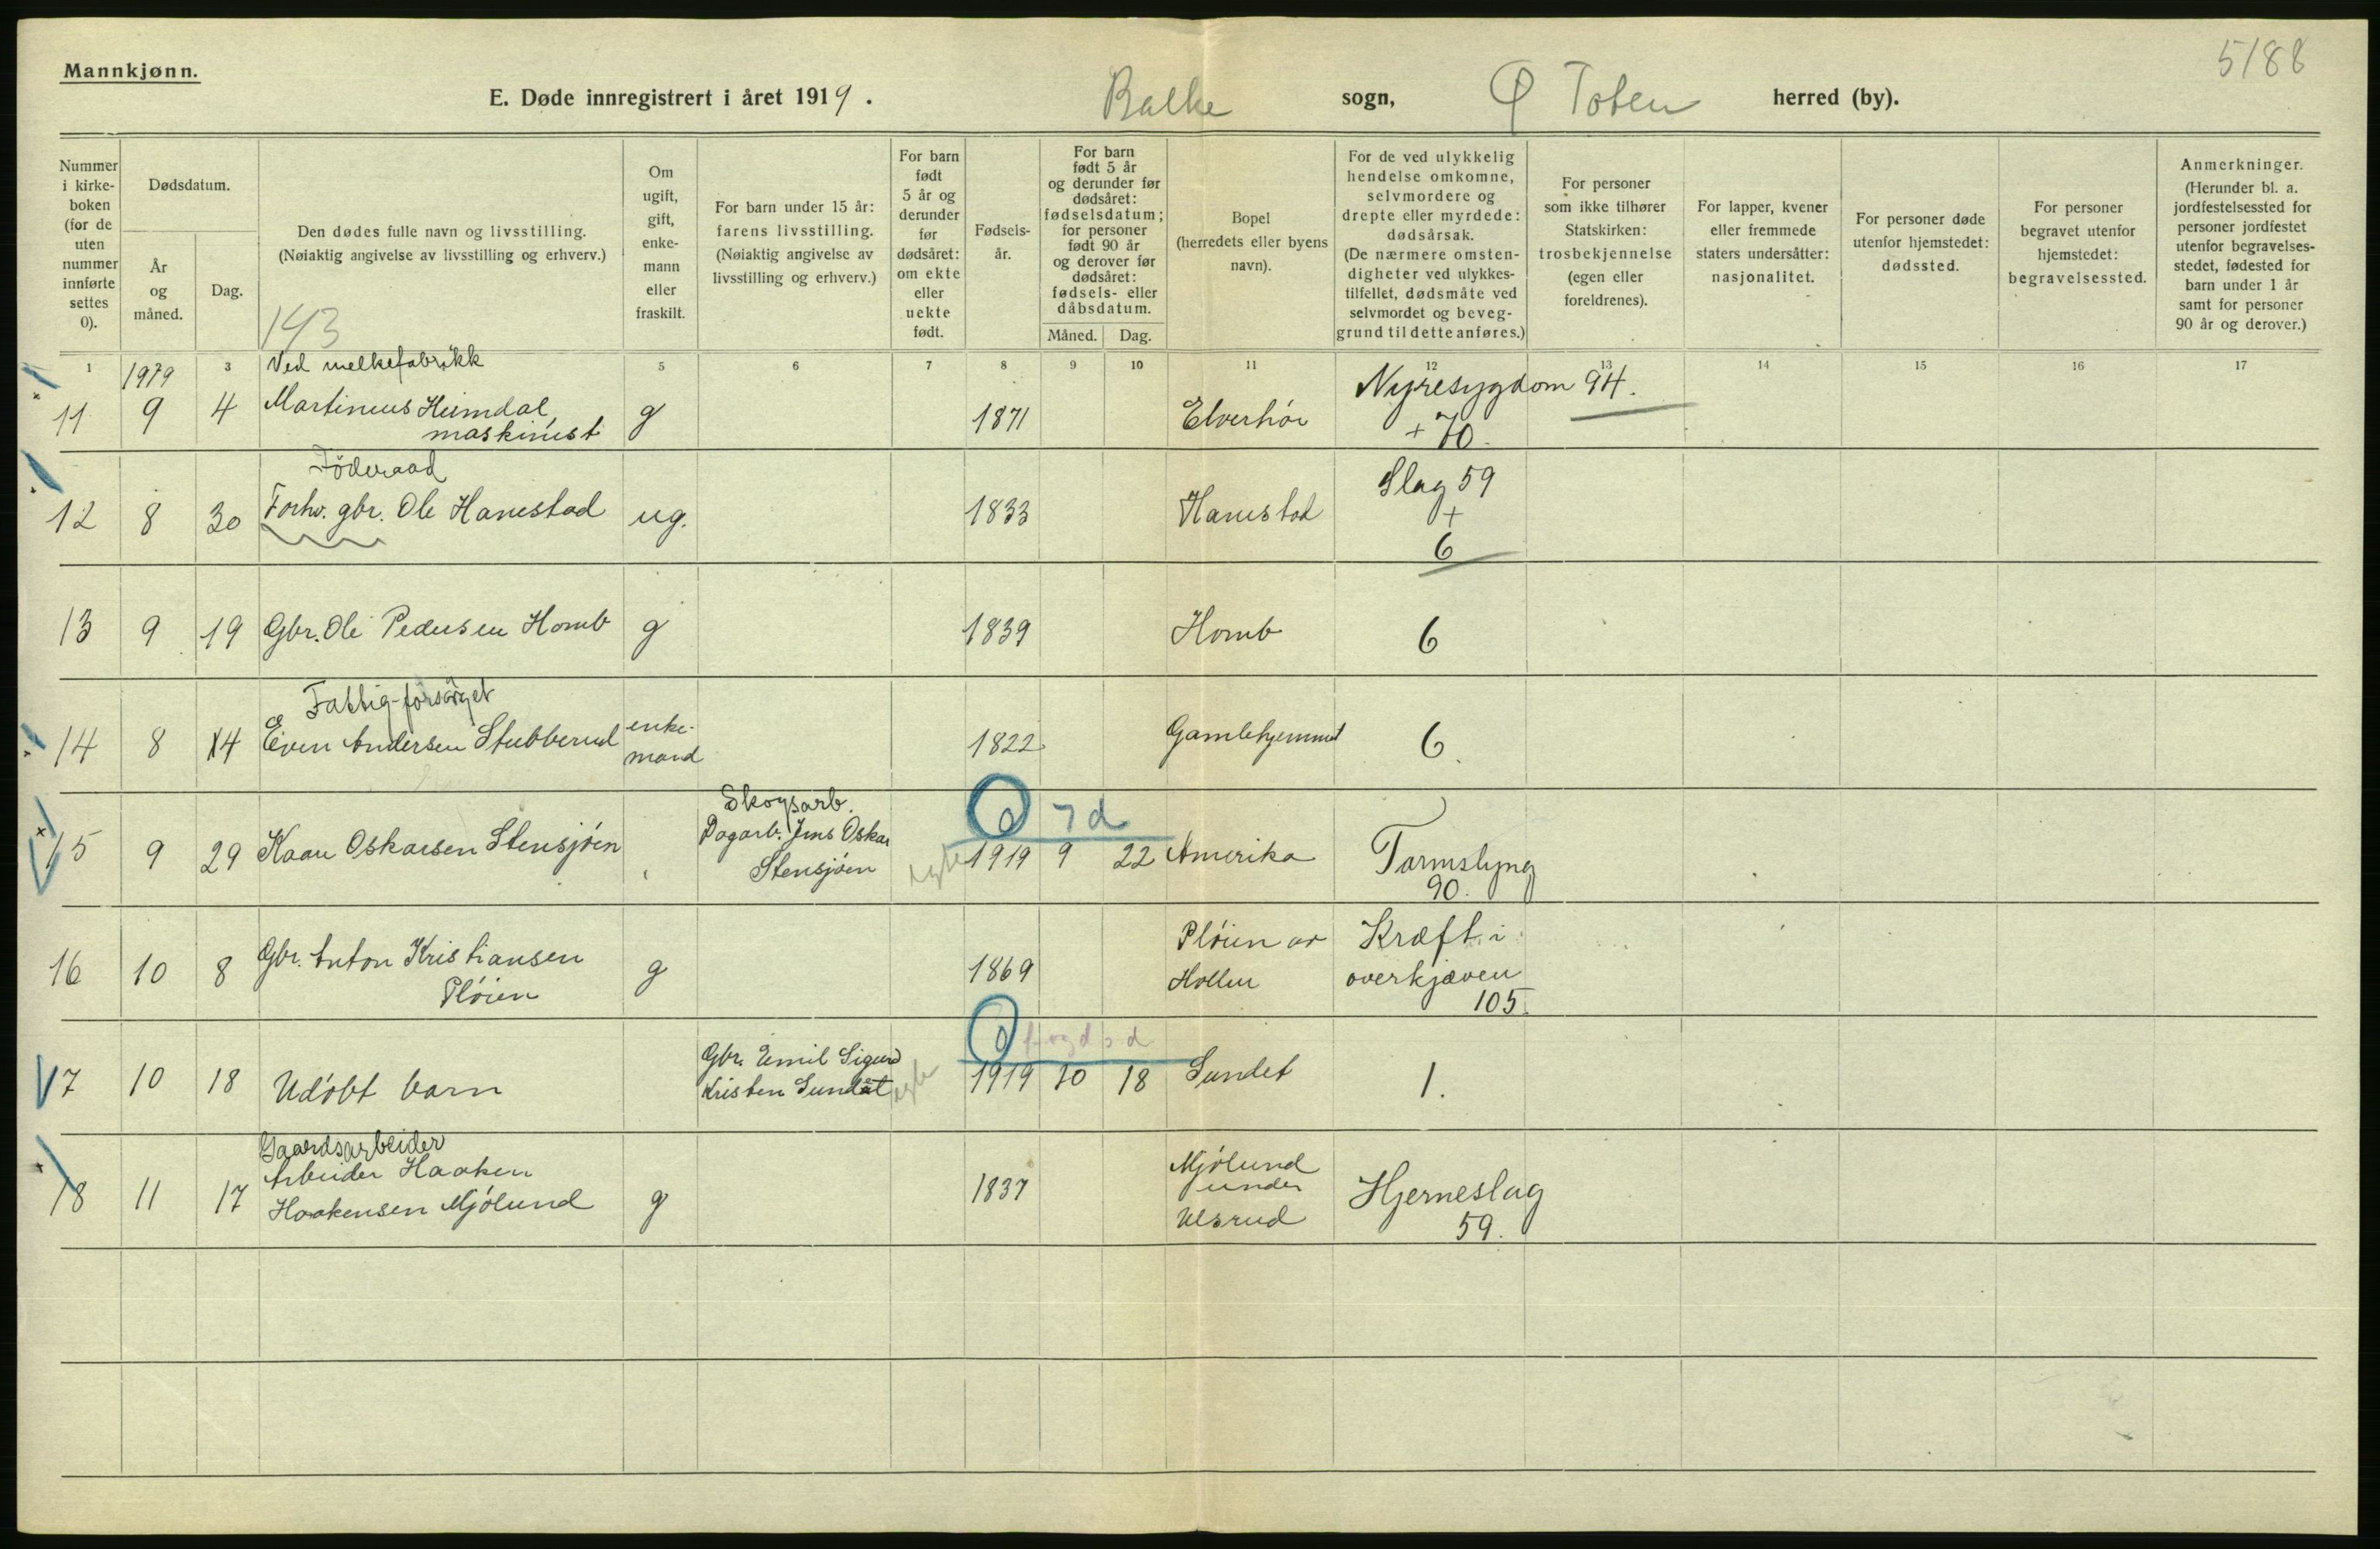 5188
Mannkjønn.
E. Døde innregistrert i året 1919. Balke sogn, Ø Toten herred (by).
Nummer i kirke- boken (for de uten nummer innførte settes 0).
Dødsdatum.
År og måned.
Dag.
Den dødes fulle navn og livsstilling.
(Nøiaktig angivelse av livsstilling og erhverv.)
143
Om ugift, gift, enke- mann eller fraskilt.
For barn under 15 år: farens livsstilling.
(Nøiaktig angivelse av livsstilling og erhverv.)
For barn født 5 år og derunder før dødsåret: om ekte eller uekte født.
Fødsels- år.
For barn født 5 år og derunder før dødsåret: fødselsdatum; for personer født 90 år og derover før dødsåret: fødsels- eller dåbsdatum.
Måned. Dag.
Bopel (herredets eller byens navn).
For de ved ulykkelig hendelse omkomne, selvmordere og drepte eller myrdede: dødsårsak.
(De nærmere omsten- digheter ved ulykkes- tilfellet, dødsmåte ved selvmordet og beveg- grund til dette anføres.)
For personer som ikke tilhører Statskirken: trosbekjennelse (egen eller foreldrenes).
For lapper, kvener eller fremmede staters undersåtter: nasjonalitet.
For personer døde utenfor hjemstedet: dødssted.
For personer begravet utenfor hjemstedet: begravelsessted.
Anmerkninger.
(Herunder bl. a. jordfestelsessted for personer jordfestet utenfor begravelses- stedet, fødested for barn under 1 år samt for personer 90 år og derover.)
1 3 5 6 7 8 9 10 11 12 13 14 15 16 17
1919 Ved melkefabrikk
11 9 4 Martinius Heimdal, maskinist g 1871 Elverhöi Nyresygdom 94.
+ 70.
Föderaad
12 8 30 Forhv. gbr. Ole Hanestad ug. 1833 Hanestad Slag 59
+
6
13 9 19 Gbr. Ole Pedersen Homb g 1839 Homb 6
Fattig-forsörget
14 8 14 Even Andersen Stubberud enke- mand 1822 Gamlehjemmet 6.
Skogsarb.
15 9 29 Kaare Oskarsen Stensjöen Dagarb. Jens Oskar Stensjöen 7 d
1919 9 22 Amerika Tarmslyng
90.
16 10 8 Gbr. Anton Kristiansen Plöien g 1869 Plöien av Hollen Kræft i overkjæven
105.
17 10 18 Udöbt barn Gbr. Emil Sigurd Kristen Sundet 1919 10 18 Sundet 1.
Gaardsarbeider
18 11 17 Arbeider Haaken Haakensen Mjölund g 1837 Mjölund under Ulsrud Hjerneslag
59.